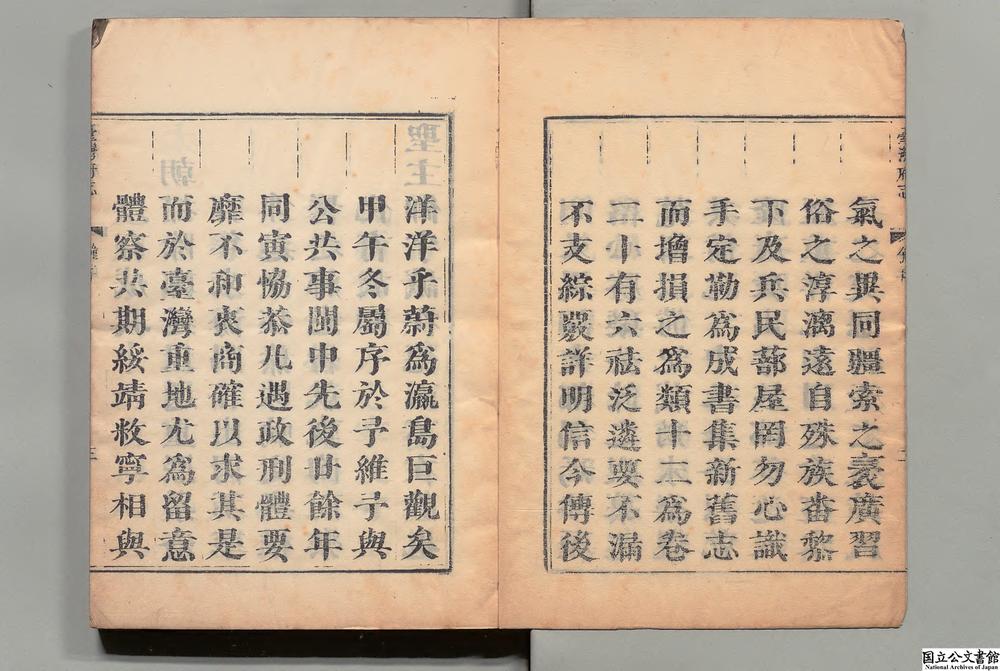 氣之異同疆索之袤廣習
俗之淳漓遠自殊族番黎
下及兵民蔀屋罔勿心識
手定勒為成書集新舊志
而增損之為類十二為卷
二十有六祛泛遴要不漏
不支綜覈詳明信今傳後
洋洋乎蔚為瀛島巨觀矣
甲午冬屬序於予維予與
公共事閩中先後廿餘年
同寅恊恭凢遇政刑體要
靡不和衷商確以求其是
而於臺灣重地尤為留意
體察共期綏靖敉寧相與
臺灣府志
国立公文書館
National Archives of Japan